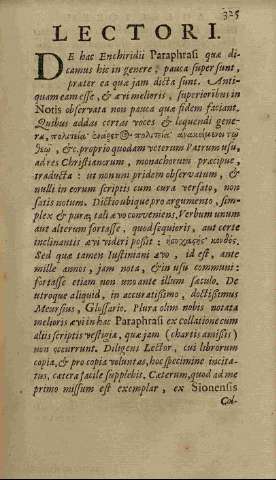 325
LECTORI.
DE hac Enchiridii Paraphrasi quæ di-
camus hic in genere; pauca supersunt,
præter ea quæ jam dicta sunt. Anti-
quam eam esse, & ævi melioris, superioribus in
Notis observata non pauca quæ fidem faciant.
Quibus addas certas voces & loquendi gene-
ra, πολιτεία
&c. proprio quodam veterum Patrum usu,
ad res Christianorum, monachorum præcipue,
traducta: ut nonum pridem observatum, &
nulli in eorum scriptis cum cura versato, non
satis notum. Dictio ubique pro argumento, sim-
plex & pura, tali ævo conveniens. Verbum unum
aut alterum fortasse, quod sequioris, aut certe
inclinantis ævi videri possit:
Sed quæ tamen Iustiniani ævo, id est, ante
mille annos, jam nota, & in usu communi:
fortasse etiam non uno ante illum sæculo. De
utroque aliquid, in accuratissimo, doctissimus
Meursius, Glossario. Plura olim nobis notata
melioris ævi in hac Paraphrasi ex collatione cum
aliis scriptis vestigia, quæ jam (chartis amissis)
non occurrunt. Diligens Lector, cui librorum
copia, & pro copia voluntas, hoc specimine incita-
tus, cætera facile supplebit. Cæterum, quod ad me
primo missum est exemplar, ex Sionensis
Col-